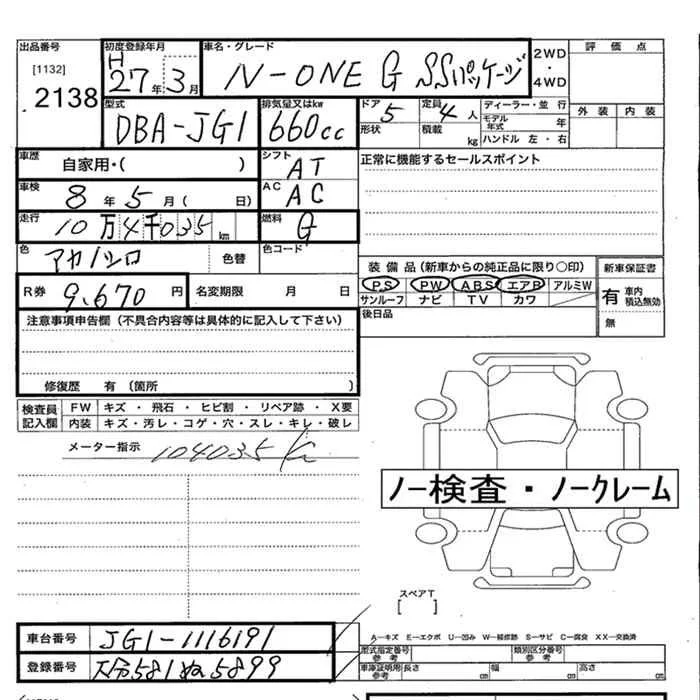 出品番号 初度登録年月 車名・グレード 2WD・4WD 評価点
[1132] H
2138 27年3月 N-ONE G SSパッケージ
外装 内装
型式 排気量又はkw ドア 5 定員 4人 ディーラー・並行
DBA-JG1 660cc 形状 積載 kg モデル年式 年
ハンドル 左・右
車歴 自家用・( ) シフト AT 正常に機能するセールスポイント
車検 8年5月( 日) AC AC
走行 10万4千035km 燃料 G
色 アカ/シロ 色替 色コード
装備品(新車からの純正品に限り○印) 新車保証書
R券 9,670円 名変期限 月 日
PS PW ABS エアB アルミW 有 車内積込無効
サンルーフ ナビ TV カワ 無
注意事項申告欄(不具合内容等は具体的に記入して下さい) 後日品
修復歴 有〔箇所 〕
検査員記入欄 FW キズ・飛石・ヒビ割・リペア跡・X要
内装 キズ・汚レ・コゲ・穴・スレ・キレ・破レ
メーター指示 104035
ノー検査・ノークレーム
スペアT
[ ]
車台番号 JG1-1116191
A-キズ E-エクボ U-凹み W-補修跡 S-サビ C-腐食 XX-交換済
型式指定番号 参考 類別区分番号 参考
登録番号 大分581ぬ5899
車庫証明用 参考 長さ cm 幅 cm 高さ cm